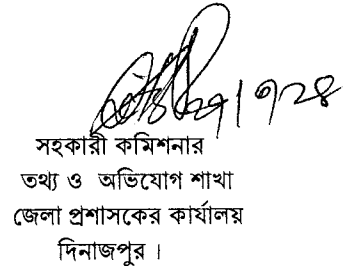 সহকারী কমিশনার
তথ্য ও অভিযোগ শাখা
জেলা প্রশাসকের কার্যালয়
দিনাজপুর ।